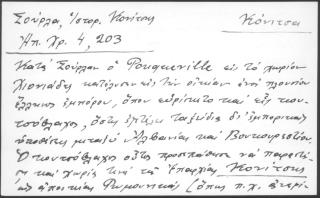 Σούρλα, Ἱστορ. Κονίτσης Κόνιτσα
Ἠπ. Χρ. 4, 203
Κατὰ Σούρλαν ὁ Pouqueville εἰς τὸ χωρίον
Χιονιάδες κατέλυσεν εἰς τὴν οἰκίαν ἑνὸς πλουσίου
ἕλληνος ἐμπόρου, ὅπου εὑρίσκετο καὶ εἷς κου-
τσόβλαχος, ὅστις ταξείδια δι' ἐμπορικὰς
ὑποθέσεις μεταξὺ Ἀλβανίας καὶ Βουκουρεστίου.
Ὁ κουτσόβλαχος οὗτος προσεπάθησε νὰ
καὶ χωρία τινὰ τῆς Ἐπαρχίας Κονίτσης
ὡς ἀποικίας Ρωμουνικὰς (ὅπως π.χ.